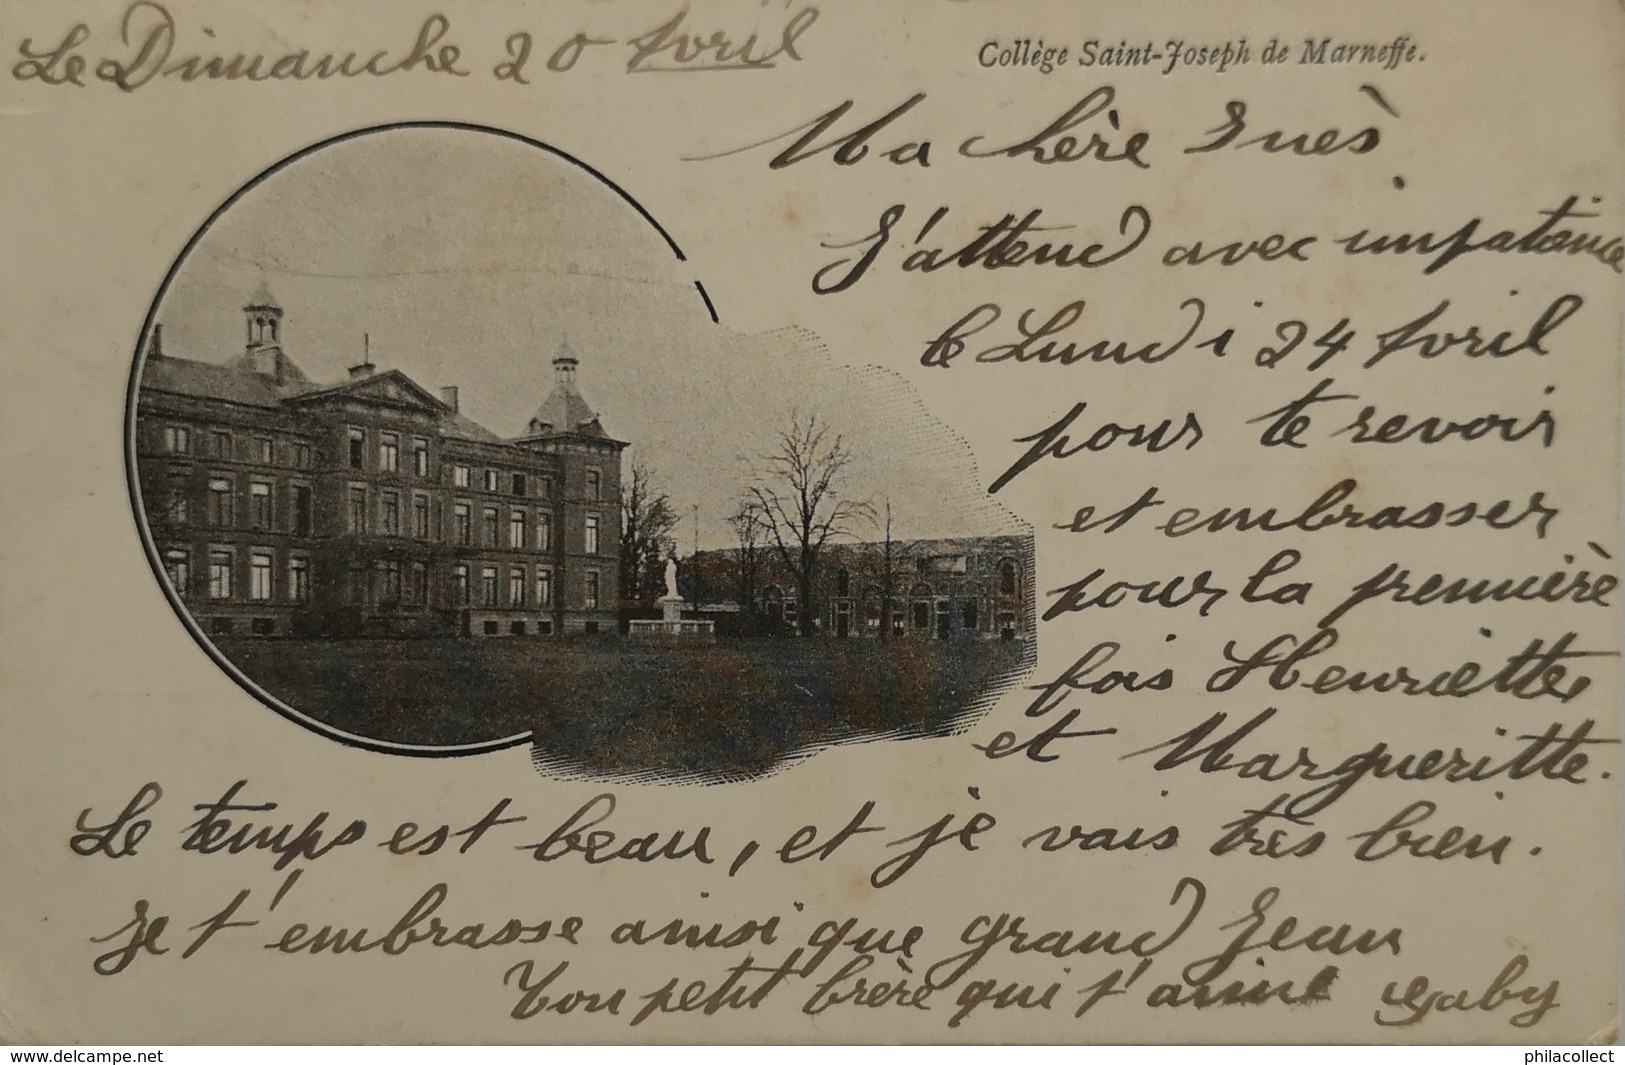 Le Dimanche 20 Avril
Collège Saint-Joseph de Marneffe.
Ma chère Inès
J'attend avec impatience
le Lundi 24 Avril
pour te revoir
et embrasser
pour la première
fois Henriette,
et Margueritte.
Le temps est beau, et je vais très bien.
Je t'embrasse ainsi que grand Jean
Ton petit frère qui t'aime Gaby
www.delcampe.net
philacollect